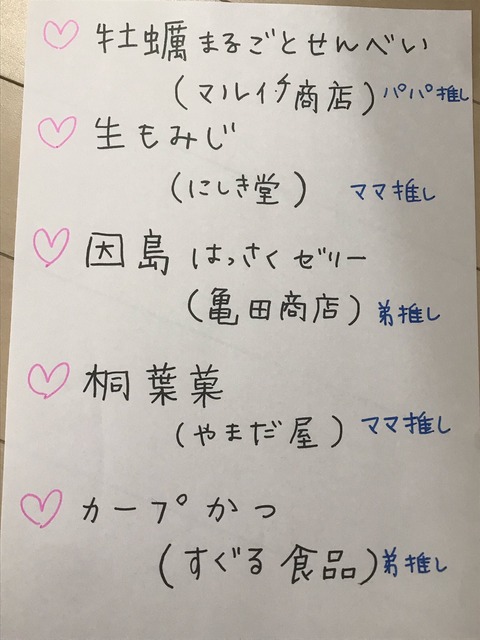 牡蠣まるごとせんべい
(マルイチ商店) パパ推し
生もみじ
(にしき堂) ママ推し
因島はっさくゼリー
(亀田商店) 弟推し
桐葉菓
(やまだ屋) ママ推し
カープかつ
(すぐる食品) 弟推し